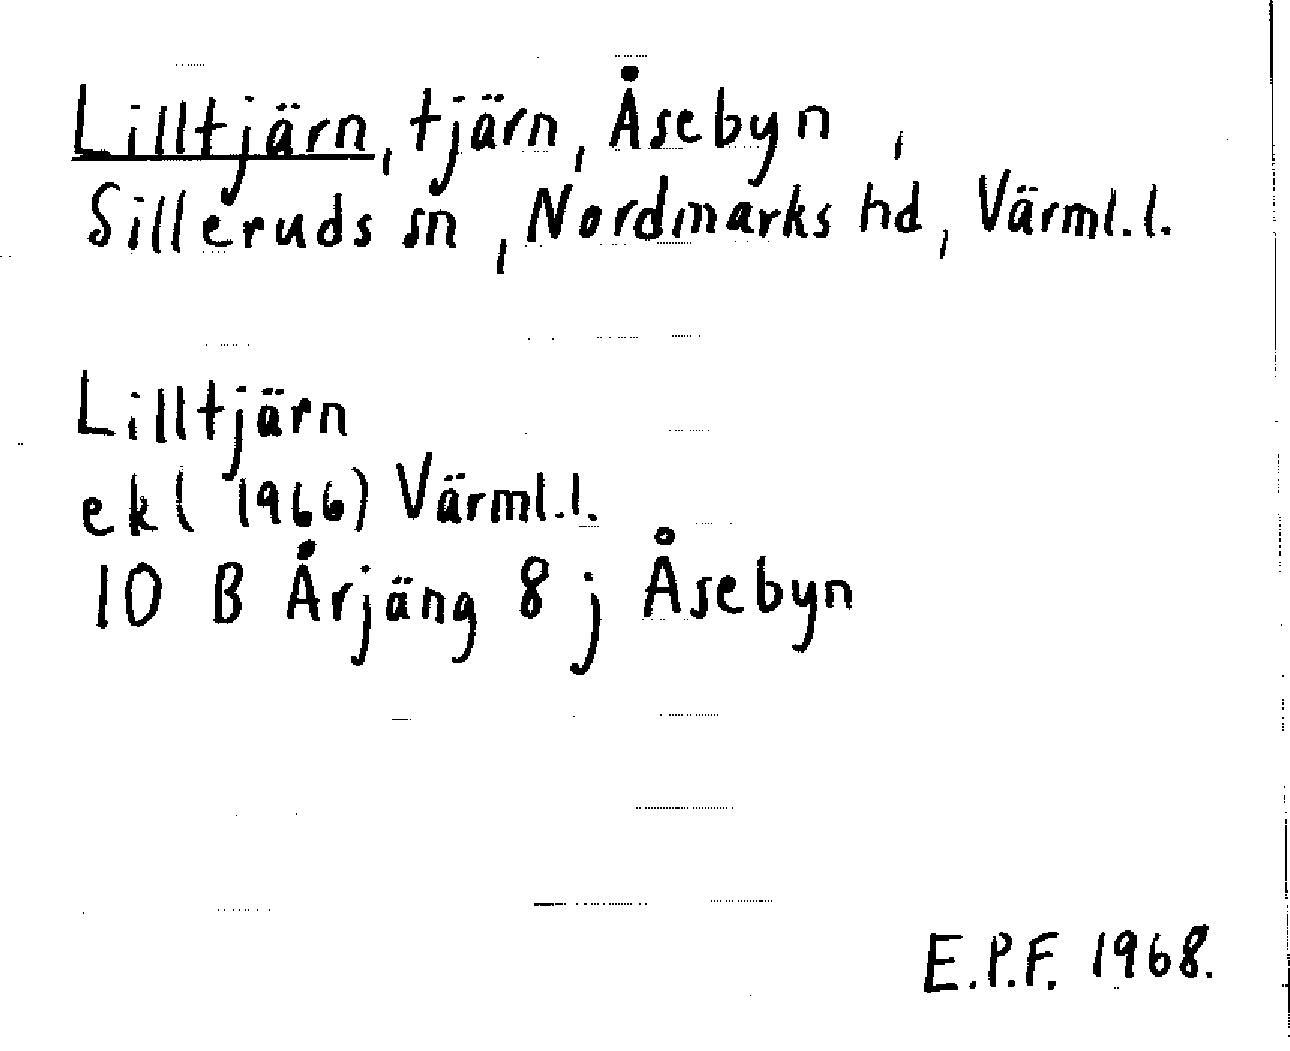 Lilltjärn, tjärn, Åsebyn,
Silleruds sn, Nordmarks hd, Värml.l.
Lilltjärn
ek(1966) Värml.l.
10 B Årjäng 8 j Åsebyn
E.P.F. 1968.